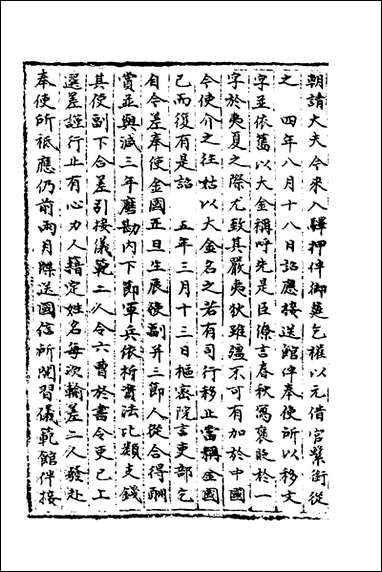 朝請大夫今來入驛押伴御筵乞權以元借官繫銜從
之　四年八月十八日詔應接送館伴奉使所以移文
字並依舊以大金稱呼先是臣僚言春秋寓褒貶於一
字於夷夏之際尤致其嚴夷狄雖彊不可有加於中國
今使介之往姑以大金名之若有司行移止當稱金國
已而復有是詔　五年三月十三日樞密院言吏部乞
自今差奉使金國正旦生辰使副并三節人從合得酬
賞並與減三年磨勘内下節軍兵依析資法比類支錢
其使副下合差引接儀範二人令六曹於書令吏已上
選差謹行止有心力人籍定姓名每次輪差二人發赴
奉使所祗應仍前兩月牒送國信所閱習儀範館伴接